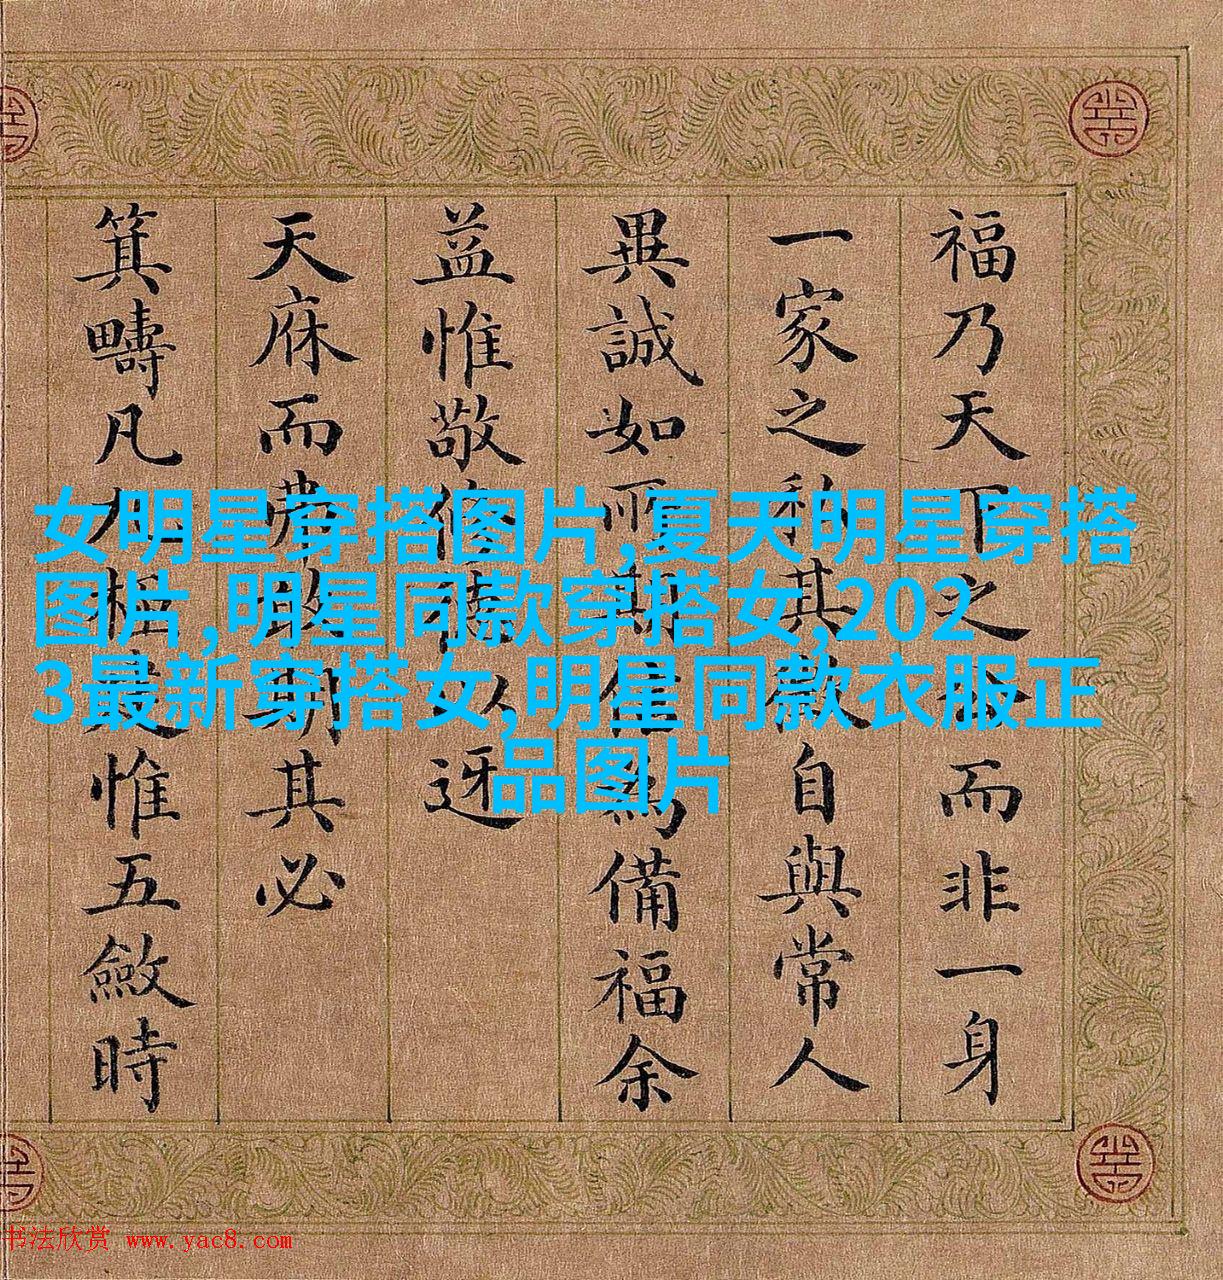 女明星穿搭图片,夏天明星穿搭
图片,明星同款穿搭女,202
3最新穿搭女,明星同款衣服正
品图片
福乃天下之而非一身
一家之私其自與常人
異誠如所期為備福余
益惟敬修以迓
天庥而勞其必
箕疇凡九惟五斂時
书法欣赏 www.yac8.com